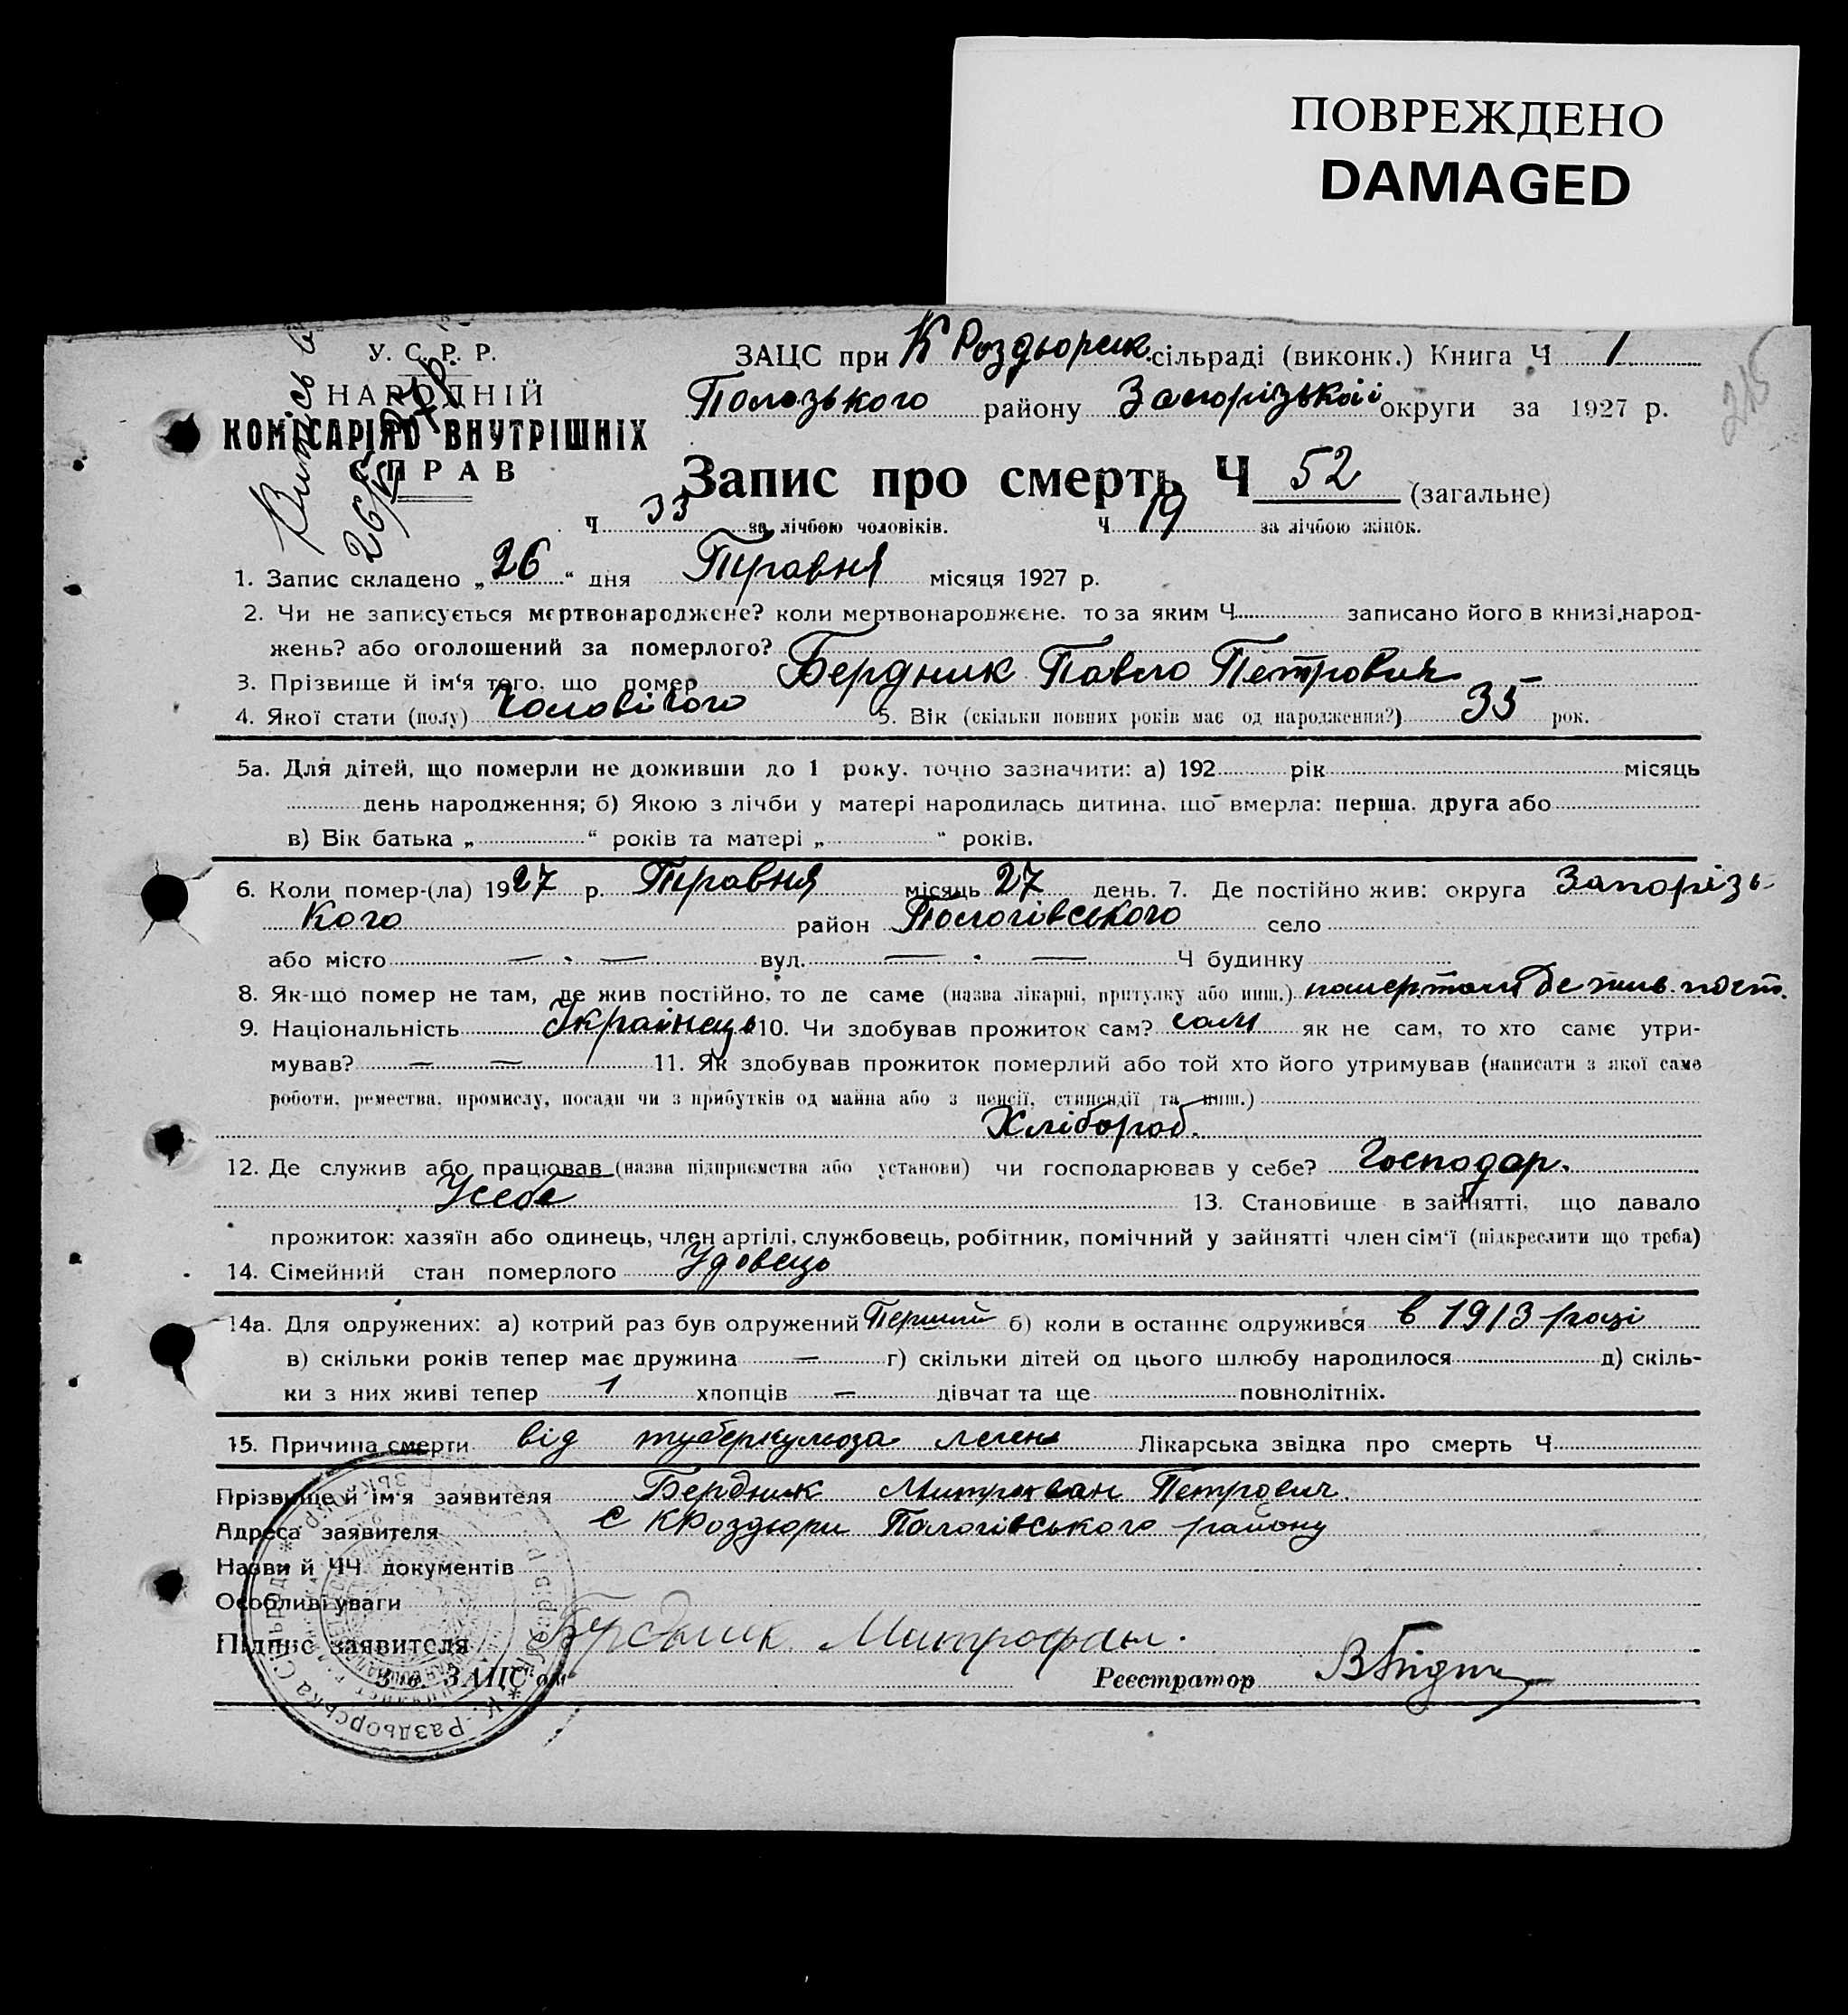 ПОВРЕЖДЕНО
DAMAGED
215
У. С. Р. Р.
НАРОДНІЙ
КОМІСАРІЯТ ВНУТРІШНІХ
СПРАВ
ЗАЦС при К Роздюрск. сільраді (виконк.) Книга Ч 1
Пологзького району Запорізькоїі округи за 1927 р.
Запис про смерть Ч 52 (загальне)
Ч 33 за лічбою чоловіків. Ч 19 за лічбою жінок.
1. Запис складено „26“ дня Травня місяця 1927 р.
2. Чи не записується мертвонароджене? коли мертвонароджене, то за яким Ч записано його в книзі народ-
жень? або оголошений за померлого?
3. Прізвище й ім'я того, що помер Бердник Павло Петрович
4. Якої стати (полу) Чоловічого 5. Вік (скільки повних років має од народження?) 35 рок.
5а. Для дітей, що померли не доживши до 1 року, точно зазначити: а) 192 рік місяць
день народження; б) Якою з лічби у матері народилась дитина, що вмерла: перша, друга або
в) Вік батька „ “ років та матері „ “ років.
6. Коли помер-(ла) 1927 р. Травня місяць 27 день. 7. Де постійно жив: округа Запорізь-
кого район Пологівського село
або місто — . — вул. — . — Ч будинку
8. Як-що помер не там, де жив постійно, то де саме (назва лікарні, притулку або инш.) помер там де жив пост.
9. Національність Українець 10. Чи здобував прожиток сам? сам як не сам, то хто саме утри-
мував? — — 11. Як здобував прожиток померлий або той хто його утримував (написати з якої саме
роботи, ремества, промислу, посади чи з прибутків од майна або з пенсії, стипендії та инш.)
Хлібороб.
12. Де служив або працював (назва підприємства або установи) чи господарював у себе? Господар.
Усебе 13. Становище в зайнятті, що давало
прожиток: хазяїн або одинець, член артілі, службовець, робітник, помічний у зайнятті член сім'ї (підкреслити що треба)
14. Сімейний стан померлого Удовець
14а. Для одружених: а) котрий раз був одружений Перший б) коли в останнє одружився в 1913 році
в) скільки років тепер має дружина — г) скільки дітей од цього шлюбу народилося д) скіль-
ки з них живі тепер 1 хлопців — дівчат та ще повнолітніх.
15. Причина смерти від туберкульоза леген Лікарська звідка про смерть Ч
Прізвище й ім'я заявителя Бердник Митрофан Петрович.
Адреса заявителя С КРоздюри Пологівського району
Назви й ЧЧ документів
Особливі уваги
Підпис заявителя Бердник Митрофан.
Зав. ЗАЦС'ом Реєстратор